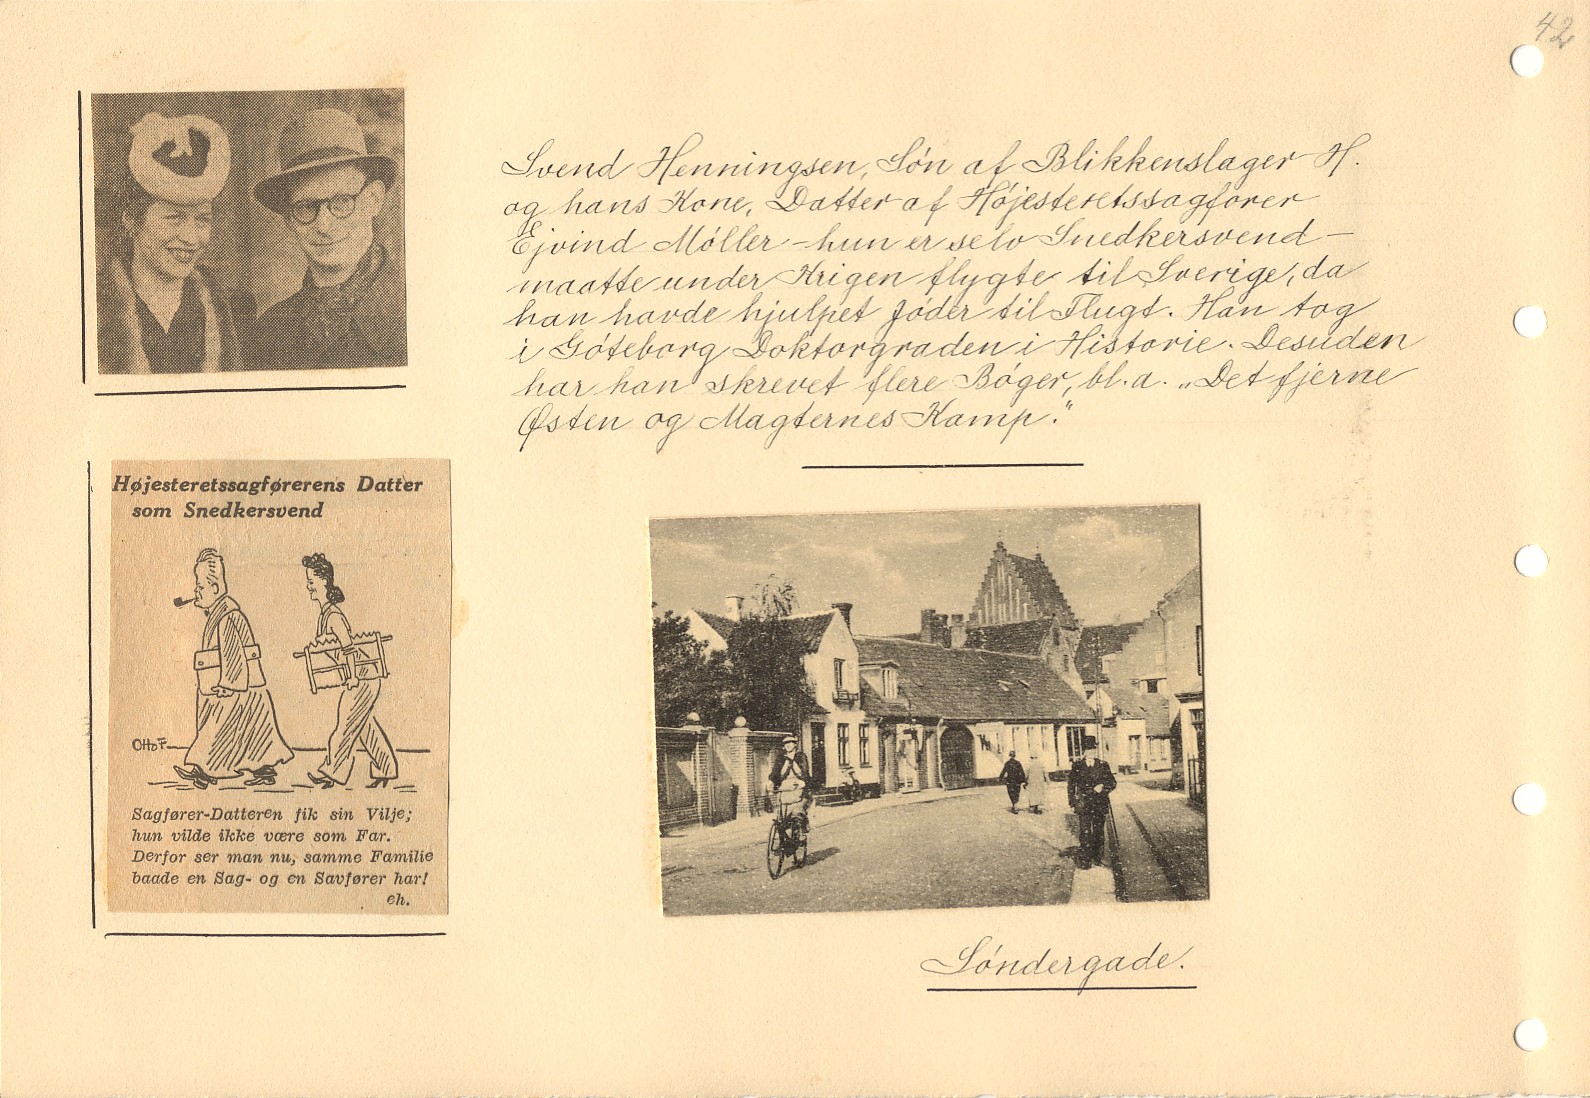 42
Svend Henningsen, Søn af Blikkenslager H.
og hans Kone, Datter af Højesteretssagfører
Ejvind Møller – hun er selv Snedkersvend –
maatte under Krigen flygte til Sverige, da
han havde hjulpet Jøder til Flugt. Han tog
i Göteborg Doktorgraden i Historie. Desuden
har han skrevet flere Bøger, bl. a. „Det fjerne
Østen og Magternes Kamp."
Højesteretssagførerens Datter
som Snedkersvend
Otto F
Sagfører-Datteren fik sin Vilje;
hun vilde ikke være som Far.
Derfor ser man nu, samme Familie
baade en Sag- og en Savfører har!
eh.
Søndergade.